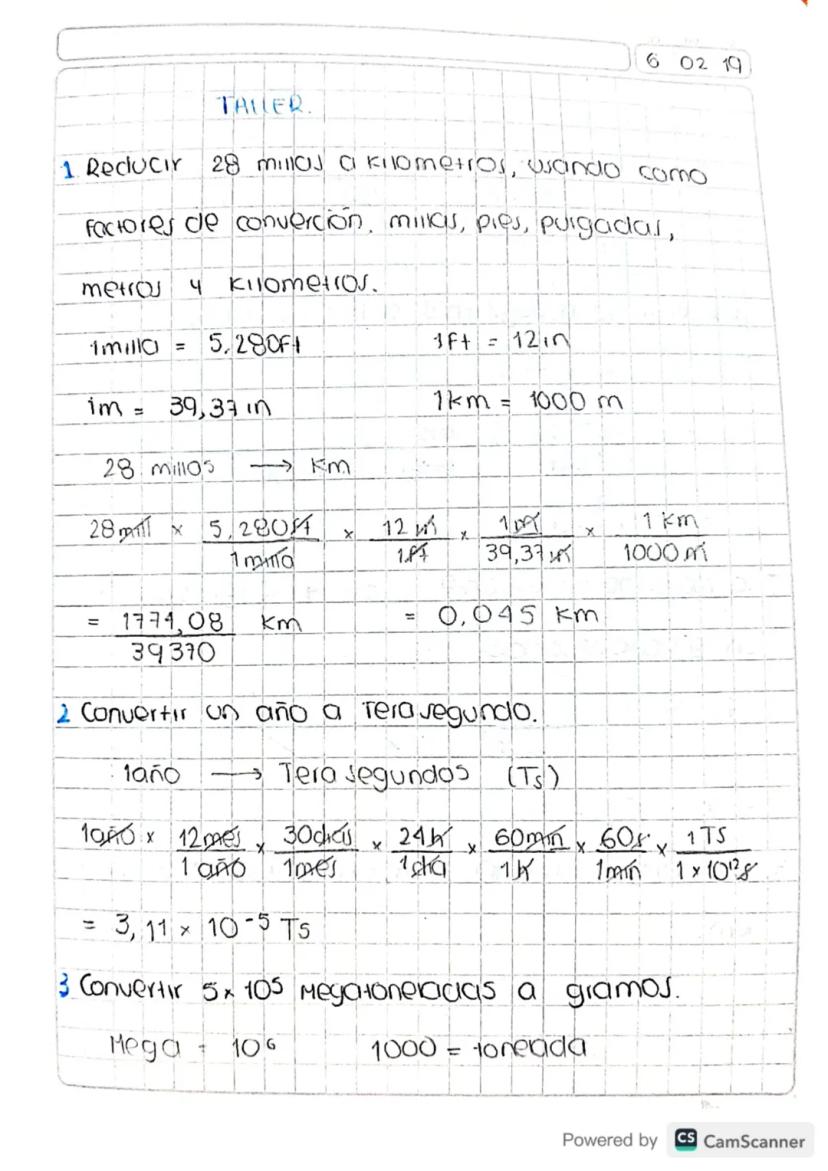 6 02 19
TALLER.
1 Reducir 28 millas a kilometros, usando como
factores de converción, millas, pies, pulgadas,
metros y kilometros.
1milla = 5,280ft 1ft = 12in
1m = 39,37 in 1km = 1000 m
28 millas → km
28 mill × 5,280ft / 1 milla × 12 in / 1ft × 1m / 39,37 in × 1 km / 1000 m
= 1774,08 / 39370 km = 0,045 km
2 Convertir un año a Tera segundo.
1año → Tera segundos (Ts)
1año × 12mes / 1 año × 30dias / 1mes × 24h / 1dia × 60min / 1h × 60s / 1min × 1TS / 1 × 10¹²s
= 3,11 × 10⁻⁵ Ts
3 Convertir 5 × 10⁵ Megatoneladas a gramos.
Mega = 10⁶ 1000 = toneada
Powered by CS CamScanner